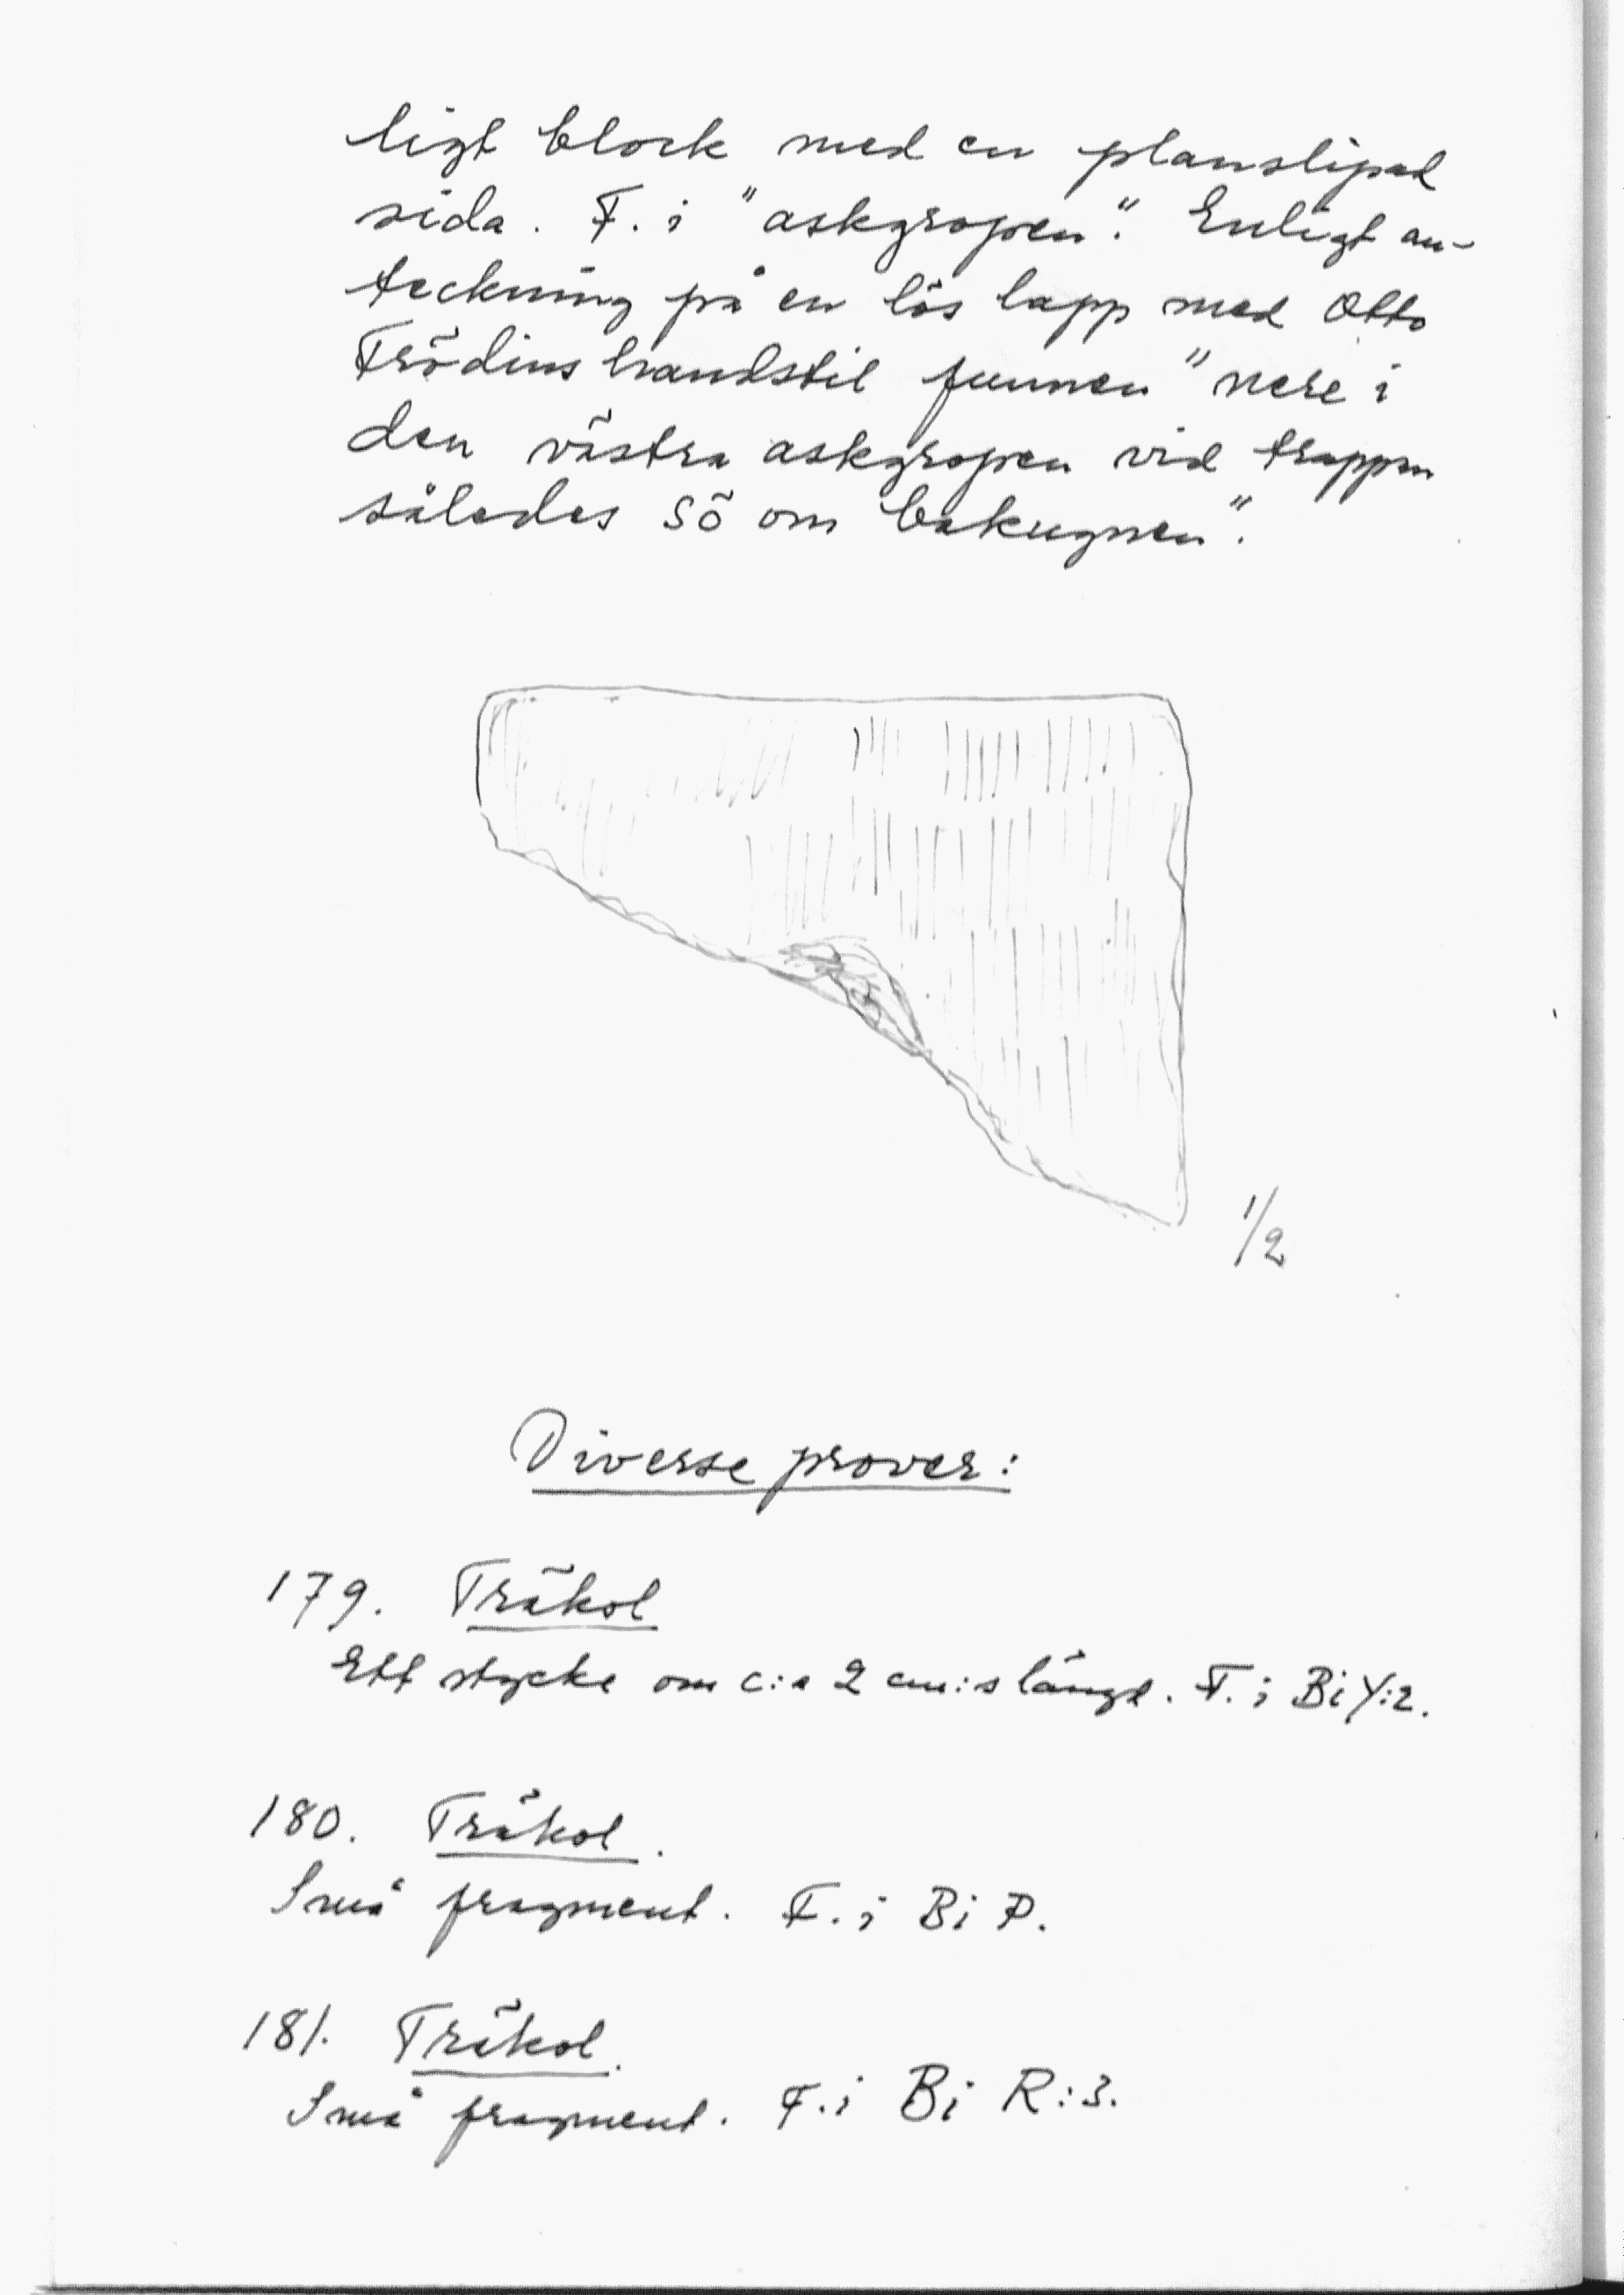 ligt block med en planslipad
sida. F. i "askgropen". Enligt an-
teckning på en lös lapp med Otto
Frödins handstil funnen "nere i
den västra askgropen vid trappan
således SÖ om bakugnen".
1/2
Diverse prover:
179. Träkol
Ett stycke om c:a 2 cm:s längd. F. i Bi Y:2.
180. Träkol.
Små fragment. F. i Bi P.
181. Träkol.
Små fragment. F. i Bi R:3.